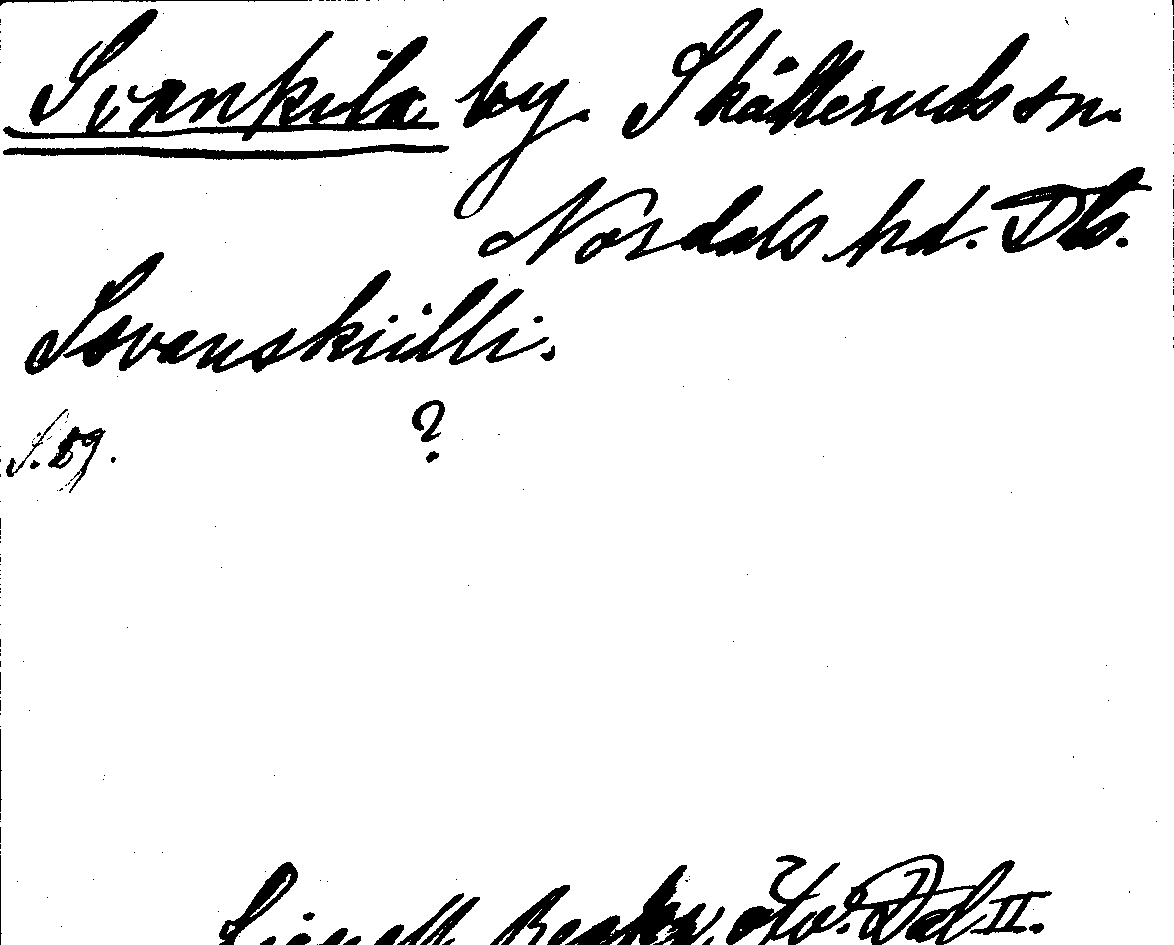 Svankila by. Skålleruds sn.
Nordals hd. Dls.
Svanskiilli.
S. 89. ?
Lignell, Beskr. öfv. Dal II.